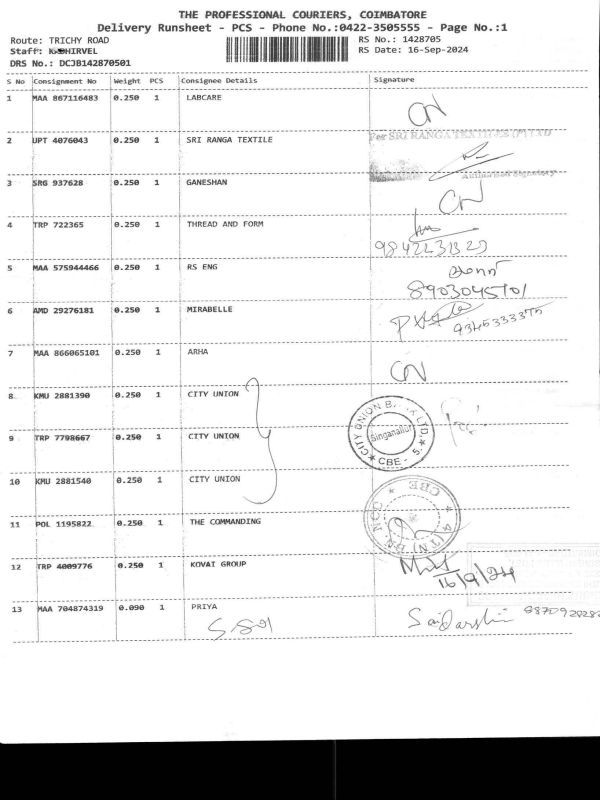 THE PROFESSIONAL COURIERS, COIMBATORE
Delivery Runsheet - PCS - Phone No.:0422-3505555 - Page No.:1
Route: TRICHY ROAD
RS No.: 1428705
Staff: HIRVEL
RS Date: 16-Sep-2024
DRS No.: DCJB142870501
S No Consignment No Weight PCS Consignee Details Signature
1 MAA 867116483 0.250 1 LABCARE CN
2 UPT 4076043 0.250 1 SRI RANGA TEXTILE
For SRI RANGA TEXTILES (P) LTD
Authorised Signatory
3 SRG 937628 0.250 1 GANESHAN CN
4 TRP 722365 0.250 1 THREAD AND FORM
5 MAA 575944466 0.250 1 RS ENG
8903045101
6 AMD 29276181 0.250 1 MIRABELLE
9345333375
7 MAA 866065101 0.250 1 ARHA CN
8 KMU 2881390 0.250 1 CITY UNION
9 TRP 7798667 0.250 1 CITY UNION
CITY UNION BANK LTD.
Singanallur
CBE - 5.
10 KMU 2881540 0.250 1 CITY UNION
11 POL 1195822 0.250 1 THE COMMANDING
4 (TN) BN NCC
CBE
12 TRP 4009776 0.250 1 KOVAI GROUP
16/9/24
13 MAA 704874319 0.090 1 PRIYA
Saidarshini